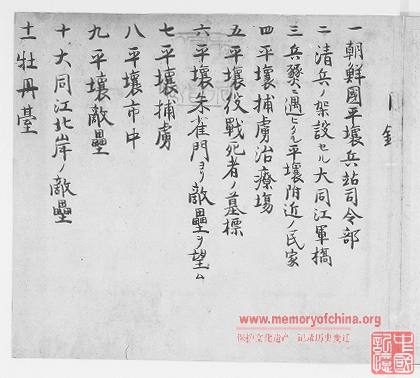 目錄
一 朝鮮國平壤兵站司令部
二 清兵ノ架設セル大同江軍橋
三 兵燹ニ遇ヒタル平壤附近ノ民家
四 平壤捕虜治療場
五 平壤役戰死者ノ墓標
六 平壤朱雀門ヨリ敵壘ヲ望ム
七 平壤捕虜
八 平壤市中
九 平壤敵壘
十 大同江北岸ノ敵壘
十一 牡丹臺
www.memoryofchina.org
保护文化遗产 记录历史变迁
中國記憶